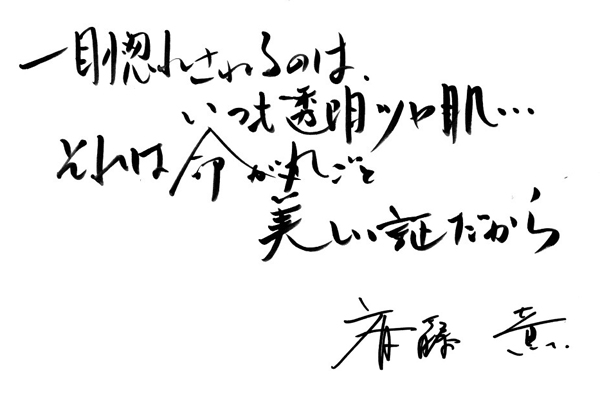 一目惚れされるのは、
いつも透明ツヤ肌…
それは命が丸ごと
美しい証だから
齋藤 薫